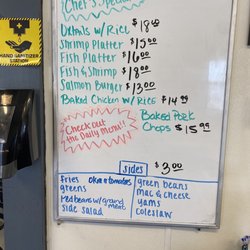 Chef's Special
Oxtails w/ Rice $18.99
Shrimp Platter $15.00
Fish Platter $16.00
Fish & Shrimp $18.00
Salmon Burger $13.00
Baked Chicken w/ Rice $14.99
Check out
the Daily Menu!!
Baked Pork
Chops $15.99
Sides $3.00
fries okra & tomatoes
greens
Red beans w/ ground meat
side salad
green beans
mac & cheese
yams
coleslaw
HAND SANITIZER
STATION